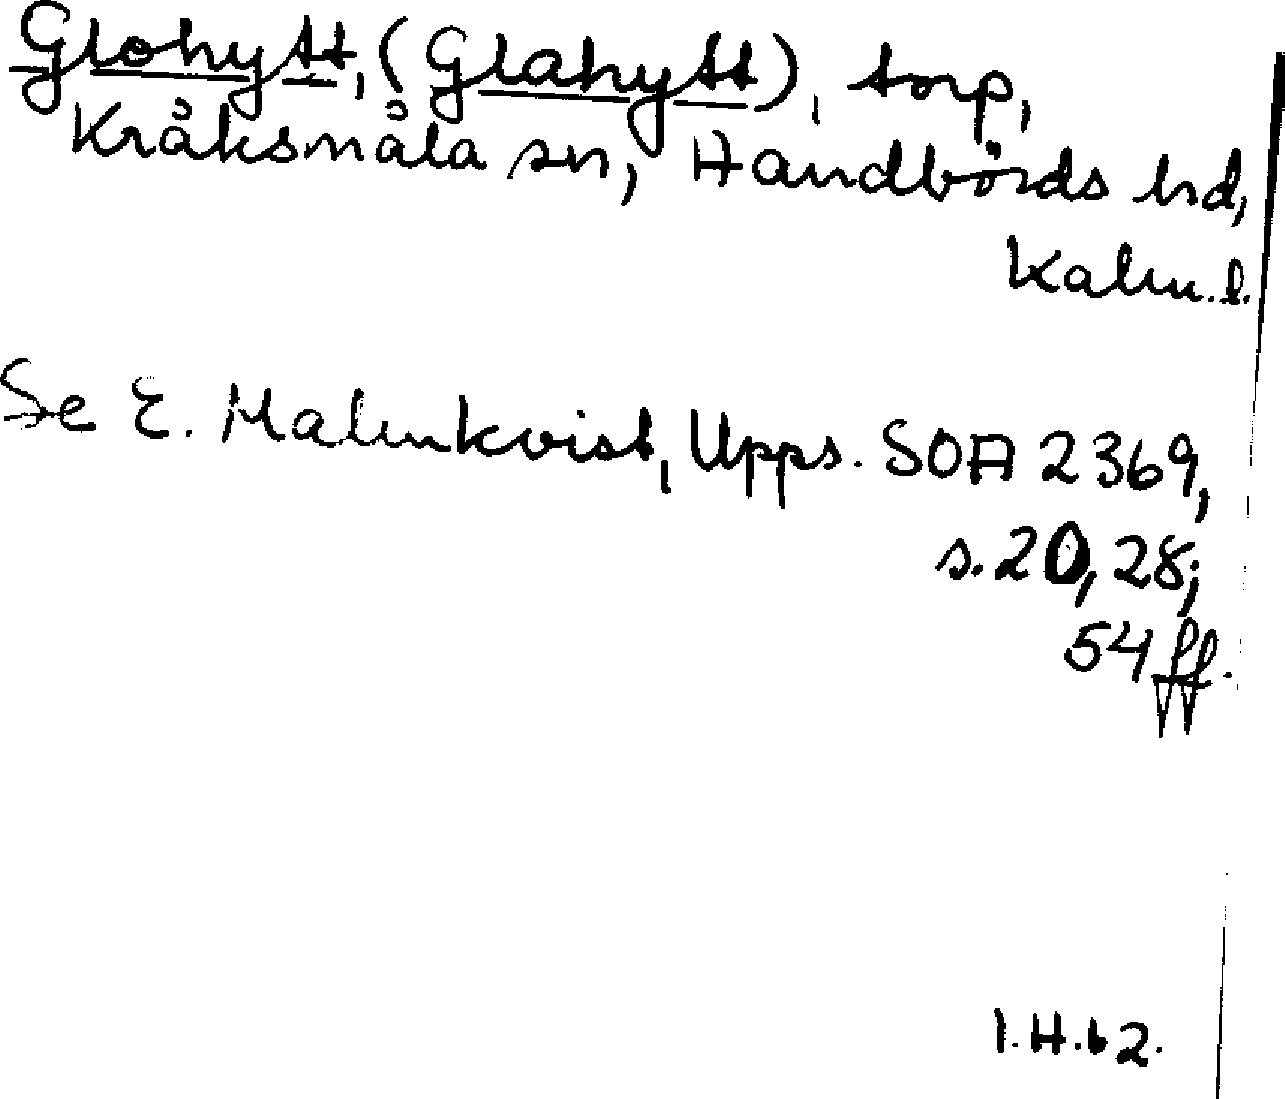 Glohytt, (Glahytt), torp,
Kråksmåla sn, Handbörds hd,
Kalm. l.
Se E. Malmkvist, Upps. SOA 2369,
s. 20, 28;
54 ff.
I.H.b2.